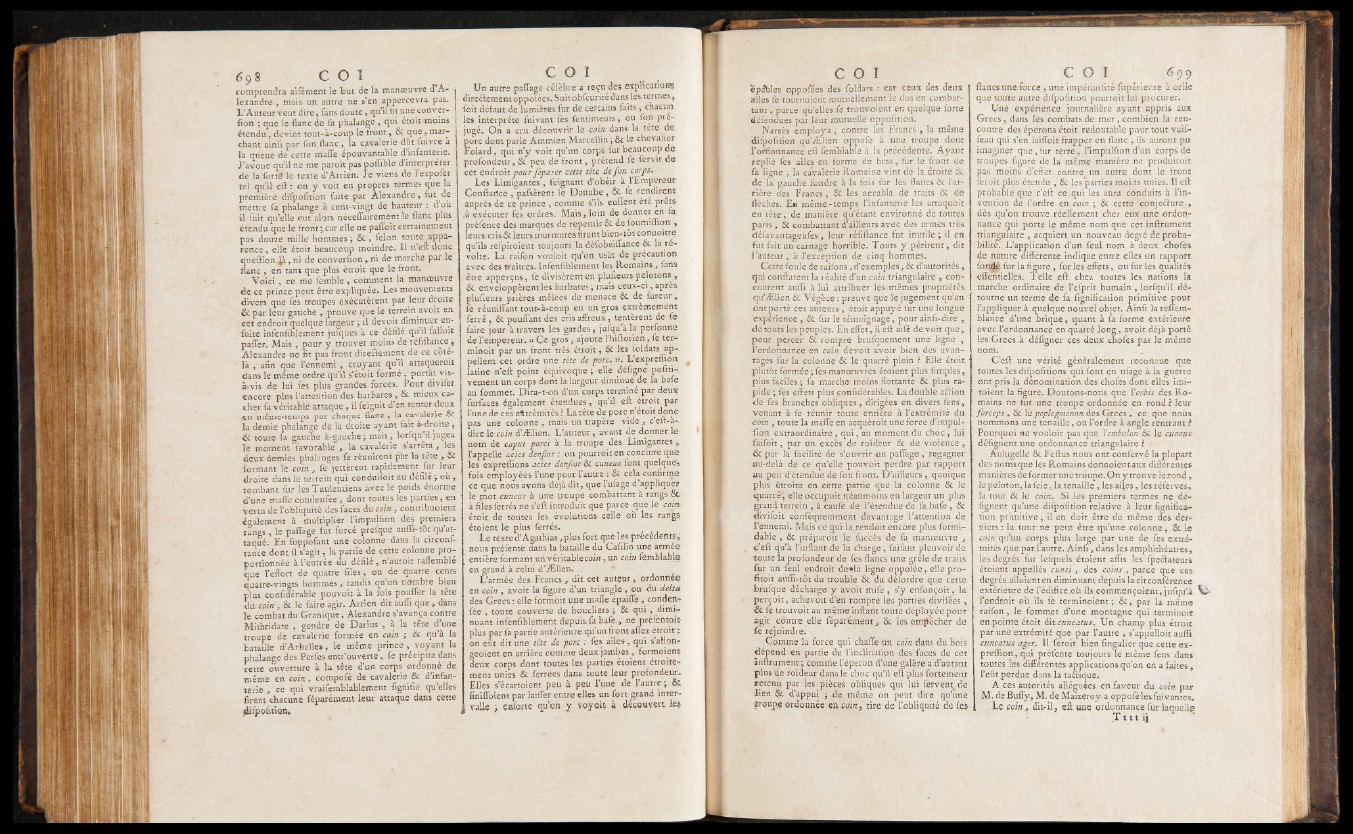 698 COI
comprendra aisément le but de la manœuvre d'A-
lexandre , mais un autre ne s'en appercevra pas.
L'Auteur veut dire, sans doute , qu'il fit une conver-
sion ; que le flanc de sa phalange , qui étoit moins
étendu, devint tout-à-coup le front, & que, mar-
chant ainsi par son flanc , la cavalerie dût suivre à
la queue de cette masse épouvantable d'infanterie.
J'avoue qu'il ne me paroît pas possible d'interpréter
de la sorte le texte d'Arrien. Je viens de l'exposer
tel qu'il est : on y voit en propres termes que la
première disposition faite par Alexandre , fut de
mettre sa phalange à cent-vingt de hauteur : d'où
il suit qu'elle eut alors nécessairement le flanc plus
étendu que le front ; car elle ne passoit certainement
pas douze mille hommes ; & , selon toute appa-
rence , elle étoit beaucoup moindre. Il n'est donc
question là , ni de conversion , ni de marche par le
flanc , en tant que plus étroit que le front.
Voici , ce me semble , comment la manœuvre
de ce prince peut être expliquée. Les mouvements
divers que ses troupes exécutèrent par leur droite
& par leur gauche , prouve que le terrein avoit en
cet endroit quelque largeur ; il devoit diminuer en-
suite insensiblement jusques à ce défilé qu'il falloit
passer. Mais , pour y trouver moins de résistance ,
Alexandre ne fit pas front directement de ce côté-
là , afin que l'ennemi , croyant qu'il attaqueroit
dans le même ordre qu'il s'étoit formé , portât vis-
à-vis de lui ses plus grandes forces. Pour diviser
encore plus l'attention des barbares , & mieux ca-
cher sa véritable attaque , il feignit d'en tenter deux
au même-temps par chaque flanc , la cavalerie &
la démie phalange de la droite ayant fait à-droite ,
& toute la gauche à-gauche ; mais , lorsqu'il jugea
le moment favorable , la cavalerie s'arrêta , les
deux demies phalanges se réunirent par la tête , &
formant le coin , se jettèrent rapidement sur leur
droite dans le terrein qui conduisoit au défilé ; où ,
tombant sur les Taulentiens avec le poids énorme
d'une masse condensée , dont toutes les parties , en
vertu de l'obliquité des faces du coin , contribuoient
également à multiplier l'impulsion des premiers
rangs , le passage fut forcé presque aussi-tôt qu'at-
taqué. En supposant une colonne dans la circons-
tance dont il s'agit , la partie de cette colonne pro-
portionnée à l'entrée du défilé , n'auroit rassemblé
que l'effort de quatre files , ou de quatre cents
quatre-vingts hommes , tandis qu'un nombre bien
plus considérable pouvoit à la fois pousser la tête
du coin , & le faire agir. Arrien dit aussi que , dans
le combat du Granique , Alexandre s'avança contre
Mithridate , gendre de Darius , à la tête d'une
troupe de cavalerie formée en coin ; & qu'à la
bataille d'Arbelles , le même prince , voyant la
phalange des Perses entr'ouverte , se précipita dans
cette ouverture à la tête d'un corps ordonné de
même en coin , composé de cavalerie & d'infan-
terie , ce qui vraisemblablement signifie qu'elles
firent chacune séparément leur attaque dans cette
disposition.
COI
Un autre passage célèbre a reçu des explications
directement opposées. Soit obscurité dans les termes,
soit défaut de lumières sur de certains faits , chacun
les interpréte suivant ses sentimens , ou son pré-
jugé. On a cru découvrir le coin dans la tête de
porc dont parle Ammien Marcellin ; & le chevalier
Folard , qui n'y voit qu'un corps sur beaucoup de
profondeur , & peu de front , prétend se servir de
cet endroit pour séparer cette tête de son corps.
Les Limigantes , feignant d'obéir à l'Empereur
Constance , passèrent le Danube , & se rendirent
auprès de ce prince , comme s'ils eussent été prêts
à exécuter ses ordres. Mais , loin de donner en sa
présence des marques de repentir & de soumission ,
leurs cris & leurs murmures firent bien-tôt connoître
qu'ils respiroient toujours la désobéissance & la ré-
volte. La raison vouloit qu'on usât de précaution
avec des traîtres. Insensiblement les Romains , sans
être apperçus , se divisèrent en plusieurs pelotons ,
& enveloppèrent les barbares ; mais ceux-ci , après
plusieurs prières mêlées de menace & de fureur ,
se réunissant tout-à-coup en un gros extrêmement
serré , & poussant des cris affreux , tentèrent de se
faire jour à travers les gardes , jusqu'à la personne
de l'empereur. « Ce gros , ajoute l'historien , se ter-
minoit par un front très étroit , & les soldats ap-
pellent cet ordre une tête de porc. ». L'expression
latine n'est point équivoque ; elle désigne positi-
vement un corps dont la largeur diminue de la base
au sommet. Dira-t-on d'un corps terminé par deux
surfaces également étendues , qu'il est étroit par
l'une de ces extrémités ? La tête de porc n'étoit donc
pas une colonne , mais un trapère vide , c'est-à-
dire le coin d'Ælien. L'auteur , avant de donner le
nom de caput porci à la troupe des Limigantes ,
l'appelle acies densior : on pourroit en conclure que
les expressions acies densior & cuneus sont quelques
fois employées l'une pour l'autre ; & cela confirme
ce que nous avons déjà dit , que l'usage d'appliquer
le mot cuneus à une troupe combattant à rangs &
à files serrés ne s'est introduit que parce que le coin
étoit de toutes les évolutions celle où les rangs
étoient le plus serrés.
Le texte d'Agathias , plus fort que les précédents,
nous présente dans la bataille du Casilin une armée
entière formant un véritable coin , un coin semblable
en grand à celui d'Ælien.
L'armée des Francs , dit cet auteur , ordonnée
en coin , avoit la figure d'un triangle , ou du delta
des Grecs : elle formoit une masse épaisse , conden-
sée , toute couverte de boucliers ; & qui , dimi-
nuant insensiblement depuis sa base , ne présentoit
plus par sa partie antérieure qu'un front assez étroit :
on eût dit une tête de porc : ses ailes , qui s'allon-
geoient en arrière comme deux jambes , formoient
deux corps dont toutes les parties étoient étroite-
ment unies & serrées dans toute leur profondeur.
Elles s'écartoient peu à peu l'une de l'autre ; &
finissoient par laisser entre elles un fort grand inter-
valle ; ensorte qu'on y voyoit à découvert les
COI
épaules opposées des soldats : car ceux des deux
ailes se tournoient mutuellement le dos en combat-
tant , parce qu'elles se trouvoient en quelque sorte
défendues par leur mutuelle opposition.
Narsès employa , contre les Francs , la même
disposition qu'Ælien oppose à une troupe dont
l'ordonnance est semblable à la précédente. Ayant
replié ses ailes en forme de bras , sur le front de
sa ligne , la cavalerie Romaine vint de la droite &
de la gauche fondre à la fois sur les flancs & l'ar-
rière des Francs , & les accabla de traits & de
flèches. En même-temps l'infanterie les attaquoit
en tête , de manière qu'étant environné de toutes
parts , & combattant d'ailleurs avec des armes très
désavantageuses , leur résistance fut inutile ; il en
fut fait un carnage horrible. Touts y périrent , dit
l'auteur , à l'exception de cinq hommes.
Cette foule de raisons , d'exemples , & d'autorités ,
qui constatent la réalité d'un coin triangulaire , con-
courent aussi à lui attribuer les mêmes propriétés
qu'Ælien & Végèce : preuve que le jugement qu'en
ont porté ces auteurs , étoit appuyé sur une longue
expérience , & sur le témoignage , pour ainsi-dire ,
de touts les peuples. En effet , il est aisé de voir que ,
pour percer & rompre brusquement une ligne ,
l'ordonnance en coin devoit avoir bien des avan-
tages sur la colonne & le quarré plein ? Elle étoit
plutôt formée ; ses manœuvres étoient plus simples,
plus faciles ; sa marche moins flottante & plus ra-
pide ; ses effets plus considérables. La double action
de ses branches obliques , dirigées en divers sens ,
venant à se réunir toute entière à l'extrémité du
coin , toute la masse en acquéroit une force d'impul-
sion extraordinaire , qui , au moment du choc , lui
faisoit , par un excès de roideur & de violence ,
& par la facilité de s'ouvrir un passage , regagner
au-delà de ce qu'elle pouvoit perdre par rapport
au peu d'étendue de son front. D'ailleurs , quoique
plus étroite en cette partie que la colonne & le
quarré , elle occupoit néanmoins en largeur un plus
grand terrein , à cause de l'étendue de sa base , &
divisoit conséquemment davantage l'attention de
l'ennemi. Mais ce qui la rendoit encore plus formi-
dable , & préparoit le succès de sa manœuvre ,
c'est qu'à l'instant de la charge , faisant pleuvoir de
toute la profondeur de ses flancs une grêle de traits
sur un seul endroit de la ligne opposée , elle pro-
fitoit aussi-tôt du trouble & du désordre que cette
brusque décharge y avoit mise , s'y enfonçoit , la
perçoit , achevoit d'en rompre les parties divisées ,
& se trouvoit au même instant toute déployée pour
agir contre elle séparément , & les empêcher de
se rejoindre.
Comme la force qui chasse un coin dans du bois
dépend en partie de l'inclination des faces de cet
instrument ; comme l'éperon d'une galère a d'autant
plus de roideur dans le choc qu'il est plus fortement
retenu par les pièces obliques qui lui servent de
lien & d'appui ; de même on peut dire qu'une
troupe ordonnée en coin , tire de l'obliquité de ses
COI 699
flancs une force , une impétuosité supérieure à celle
que toute autre disposition pourroit lui procurer.
Une expérience journalière ayant appris aux
Grecs , dans les combats de mer , combien la ren-
contre des éperons étoit redoutable pour tout vais-
seau qui s'en laissoit frapper en flanc , ils auront pu
imaginer que , sur terre , l'impulsion d'un corps de
troupes figuré de la même manière ne produiroit
pas moins d'effet contre un autre dont le front
seroit plus étendu , & les parties moins unies. Il est
probable que c'est ce qui les aura conduits à l'in-
vention de l'ordre en coin ; & cette conjecture ,
dès qu'on trouve réellement chez eux une ordon-
nance qui porte le même nom que cet instrument
triangulaire , acquiert un nouveau degré de proba-
bilité. L'application d'un seul nom à deux choses
de nature différente indique entre elles un rapport
fondé sur la figure , sur les effets , ou sur les qualités
essentielles. Telle est chez toutes les nations la
marche ordinaire de l'esprit humain , lorsqu'il dé-
tourne un terme de sa signification primitive pour
l'appliquer à quelque nouvel objet. Ainsi la ressem-
blance d'une brique , quant à sa forme extérieure
avec l'ordonnance en quarré long , avoit déjà porté
les Grecs à désigner ces deux choses par le même
nom.
C'est une vérité généralement reconnue que
toutes les dispositions qui sont en usage à la guerre
ont pris la dénomination des choses dont elles imi-
toient la figure. Doutons-nous que l'orbis des Ro-
mains ne fut une troupe ordonnée en rond ? leur
forceps , & le peplegmenon des Grecs , ce que nous
nommons une tenaille , ou l'ordre à angle rentrant ?
Pourquoi ne vouloir pas que l'embolon & le cuneus
désignent une ordonnance triangulaire ?
Aulugelle & Festus nous ont conservé la plupart
des noms que les Romains donnoient aux différentes
manières de former une troupe. On y trouve le rond ,
le peloton , la scie , la tenaille , les ailes , les réserves,
la tour & le coin. Si les premiers termes ne dé-
signent qu'une disposition relative à leur significa-
tion primitive , il en doit être de même des der-
niers : la tour ne peut être qu'une colonne , & le
coin qu'un corps plus large par une de ses extré-
mités que par l'autre. Ainsi , dans les amphithéatres,
les degrés sur lesquels étoient assis les spectateurs
étoient appellés cunei , des coins , parce que ces
degrés alloient en diminuant depuis la circonférence
extérieure de l'édifice où ils commençoient , jusqu'à
l'endroit où ils se terminoient ; & , par la même
raison , le sommet d'une montagne qui terminoit
en pointe étoit dit cuncatus. Un champ plus étroit
par une extrémité que par l'autre , s'appelloit aussi
cuncatus ager. Il seroit bien singulier que cette ex-
pression , qui présente toujours le même sens dans
toutes les différentes applications qu'on en a faites ,
l'eût perdue dans la tactique.
A ces autorités alléguées en faveur du coin par
M. de Bussy, M. de Maizeroy a opposé les suivantes.
Le coin , dit-il , est une ordonnance sur laquelle
Tttt ij